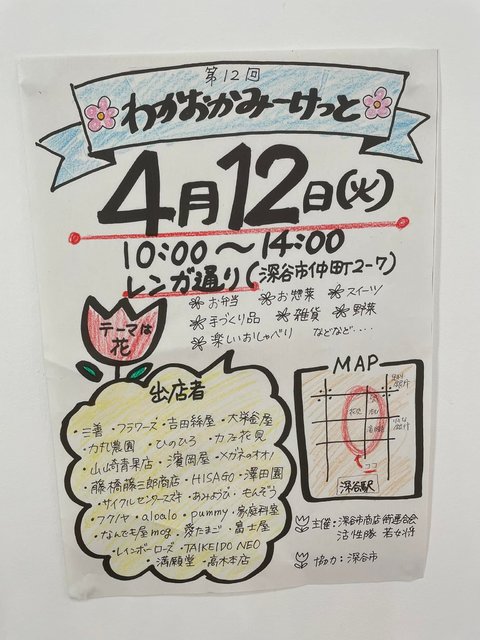 第12回
わかおかみーけっと
4月12日(火)
10:00〜14:00
レンガ通り(深谷市仲町2-7)
お弁当 お惣菜 スイーツ
手づくり品 雑貨 野菜
楽しいおしゃべり などなど....
テーマは
花
出店者
・三善 ・フラワーズ ・吉田絲屋 ・大栄金屋
・カネヒ農園 ・ひのひろ ・カフェ花見
・山崎青果店 ・濱岡屋 ・メガネのオオノ
・藤橋藤三郎商店 ・HISAGO ・澤田園
・サイクルセンタースズキ ・あみょうび ・もんぞう
・フクノヤ ・aloalo ・pummy ・家庭科室
・なんでも屋mog ・愛たまご ・冨士屋
・レインボーローズ ・TAIKEIDO NEO
・満願堂 ・高木本店
MAP
ココ
深谷駅
主催:深谷市商店街連合会
活性隊 若女将
協力:深谷市